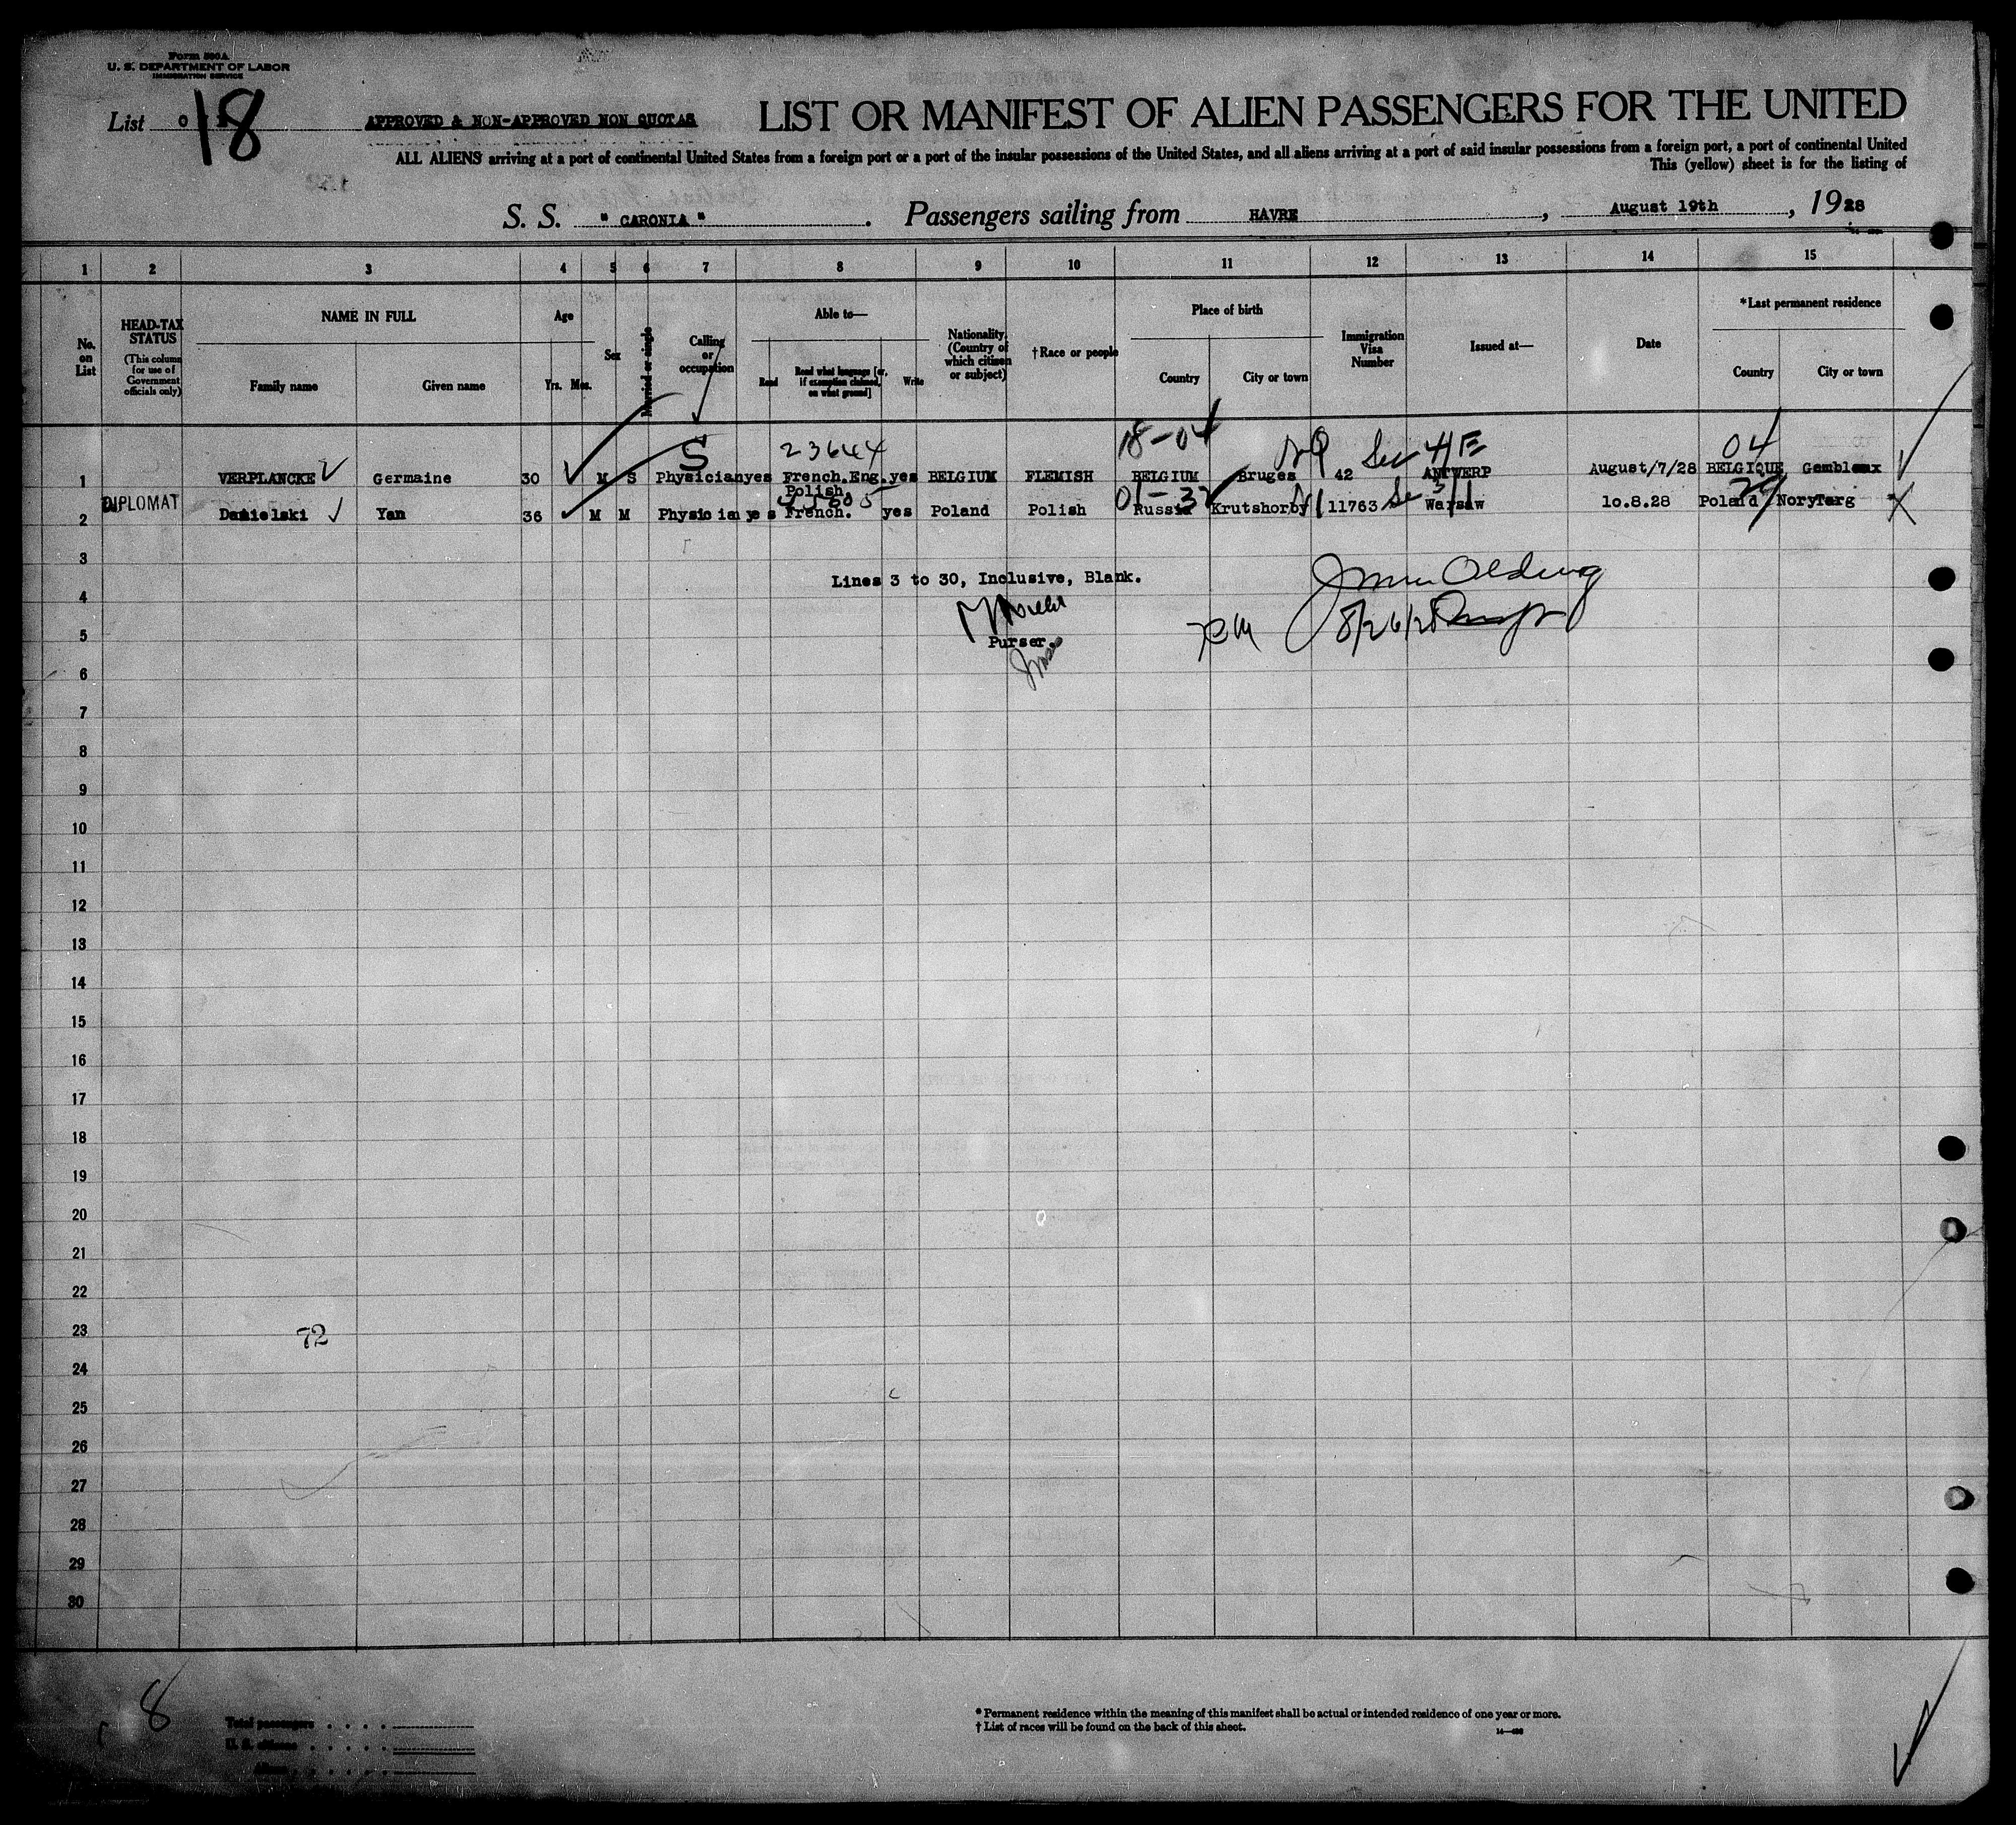 Form 500A
U. S. DEPARTMENT OF LABOR
IMMIGRATION SERVICE
List 18
APPROVED & NON-APPROVED NON QUOTAS
LIST OR MANIFEST OF ALIEN PASSENGERS FOR THE UNITED
ALL ALIENS arriving at a port of continental United States from a foreign port or a port of the insular possessions of the United States, and all aliens arriving at a port of said insular possessions from a foreign port, a port of continental United
This (yellow) sheet is for the listing of
S. S. "CARONIA". Passengers sailing from HAVRE, August 19th, 1928
1 2 3 4 5 6 7 8 9 10 11 12 13 14 15
No. on List
HEAD-TAX STATUS (This column for use of Government officials only)
NAME IN FULL
Family name Given name
Age
Yrs. Mos.
Sex
Married or single
Calling or occupation
Able to—
Read Read what language [or, if exemption claimed, on what ground] Write
Nationality. (Country of which citizen or subject)
†Race or people
Place of birth
Country City or town
Immigration Visa Number
Issued at—
Date
*Last permanent residence
Country City or town
S 23644 18-04 NQ Sec 4/E 04
1 VERPLANCKE Germaine 30 M S Physician yes French.Eng. yes BELGIUM FLEMISH BELGIUM Bruges 42 ANTWERP August/7/28 BELGIQUE Gembloux
DIPLOMAT
Polish.
01-32 29
2 Danielski Yan 36 M M Physician yes French. yes Poland Polish Russia Krutshorby 11763 Warsaw 10.8.28 Poland NoryTarg
3
Lines 3 to 30, Inclusive, Blank.
4
8/26/28
5
Purser.
6
7
8
9
10
11
12
13
14
15
16
17
18
19
20
21
22
23 72
24
25
26
27
28
29
30
8
Total passengers
U. S. citizens
Aliens
* Permanent residence within the meaning of this manifest shall be actual or intended residence of one year or more.
† List of races will be found on the back of this sheet.